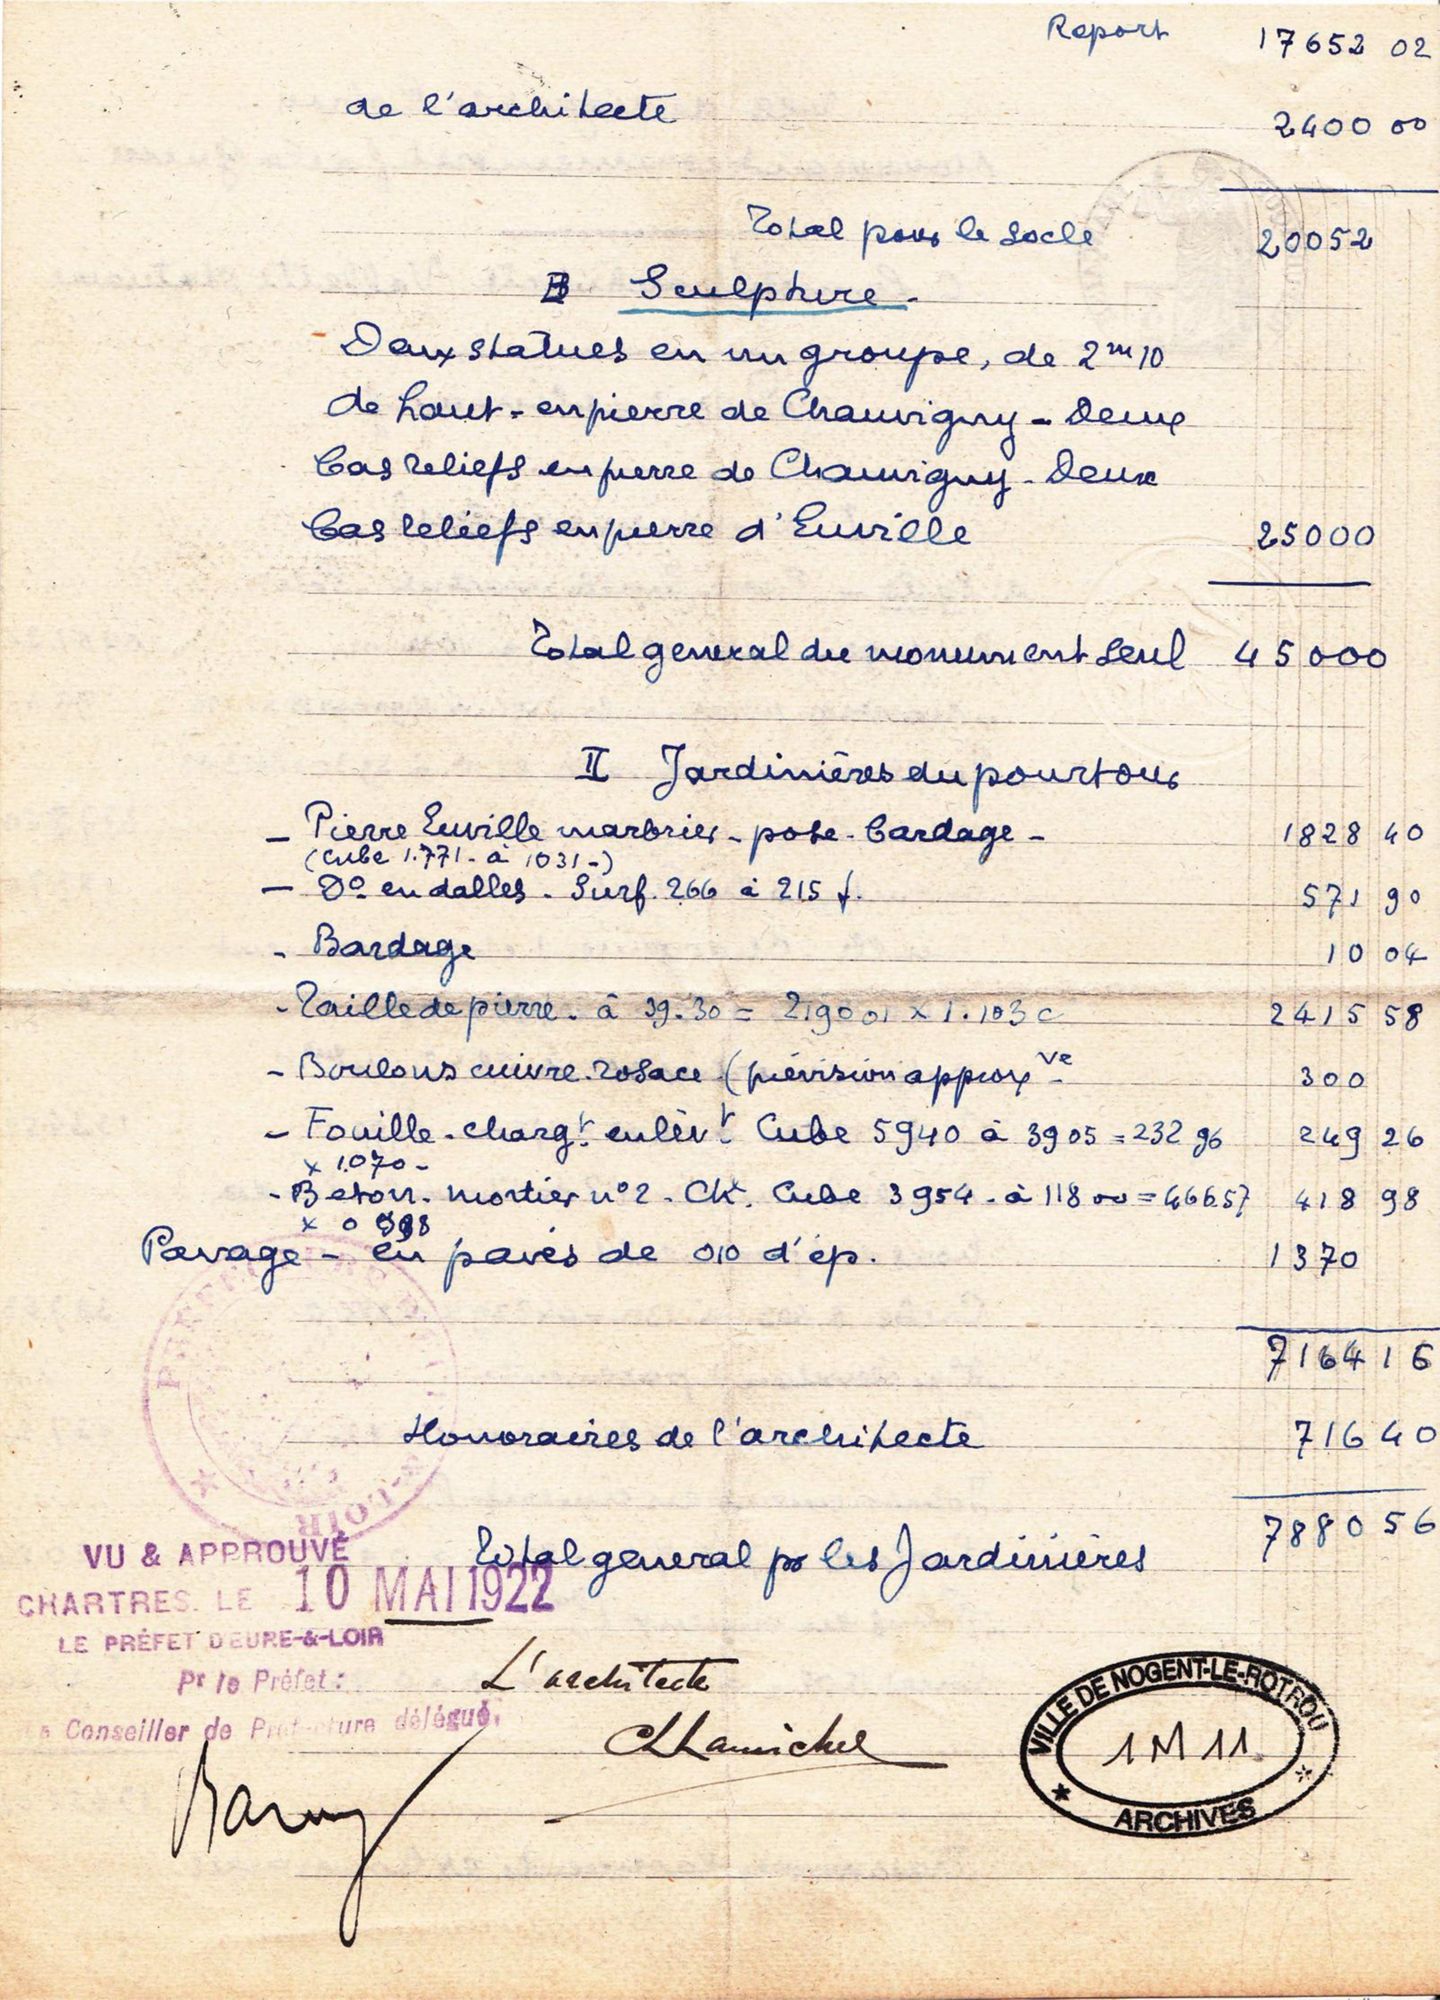 Report 17652 02
de l'architecte 2400 00
Total pour le socle 20052
B Sculpture.
Deux statues en un groupe, de 2m10
de haut - en pierre de Chauvigny - Deux
bas reliefs en pierre de Chauvigny - Deux
bas reliefs en pierre d'Euville 25000
Total general du monument seul 45000
II Jardinières du pourtour
- Pierre Euville marbrier - pose - bardage - 1828 40
(cube 1.771 - à 1031 -)
- Do en dalles. Surf. 266 à 215 f. 571 90
- Bardage 10 04
- Taille de pierre - à 39.30 = 2190 01 x 1.103 c 2415 58
- Boulons cuivre - rosace (prévision approxve 300
- Fouille - chargt enlèvt Cube 5940 à 3905 = 232 96 249 26
x 1.070 -
- Béton - mortier n°2 - Ck. Cube 3954 - à 118 00 = 466.57 418 98
x 0 898
Pavage - en pavés de 010 d'ép. 1370
7164 16
Honoraires de l'architecte 716 40
Total general pr les Jardinières 7880 56
PRÉFECTURE D'EURE-&-LOIR
VU & APPROUVÉ
CHARTRES, LE 10 MAI 1922
LE PRÉFET D'EURE-&-LOIR
Pr le Préfet:
Le Conseiller de Préfecture délégué,
L'architecte
VILLE DE NOGENT-LE-ROTROU
1 M 11
ARCHIVES